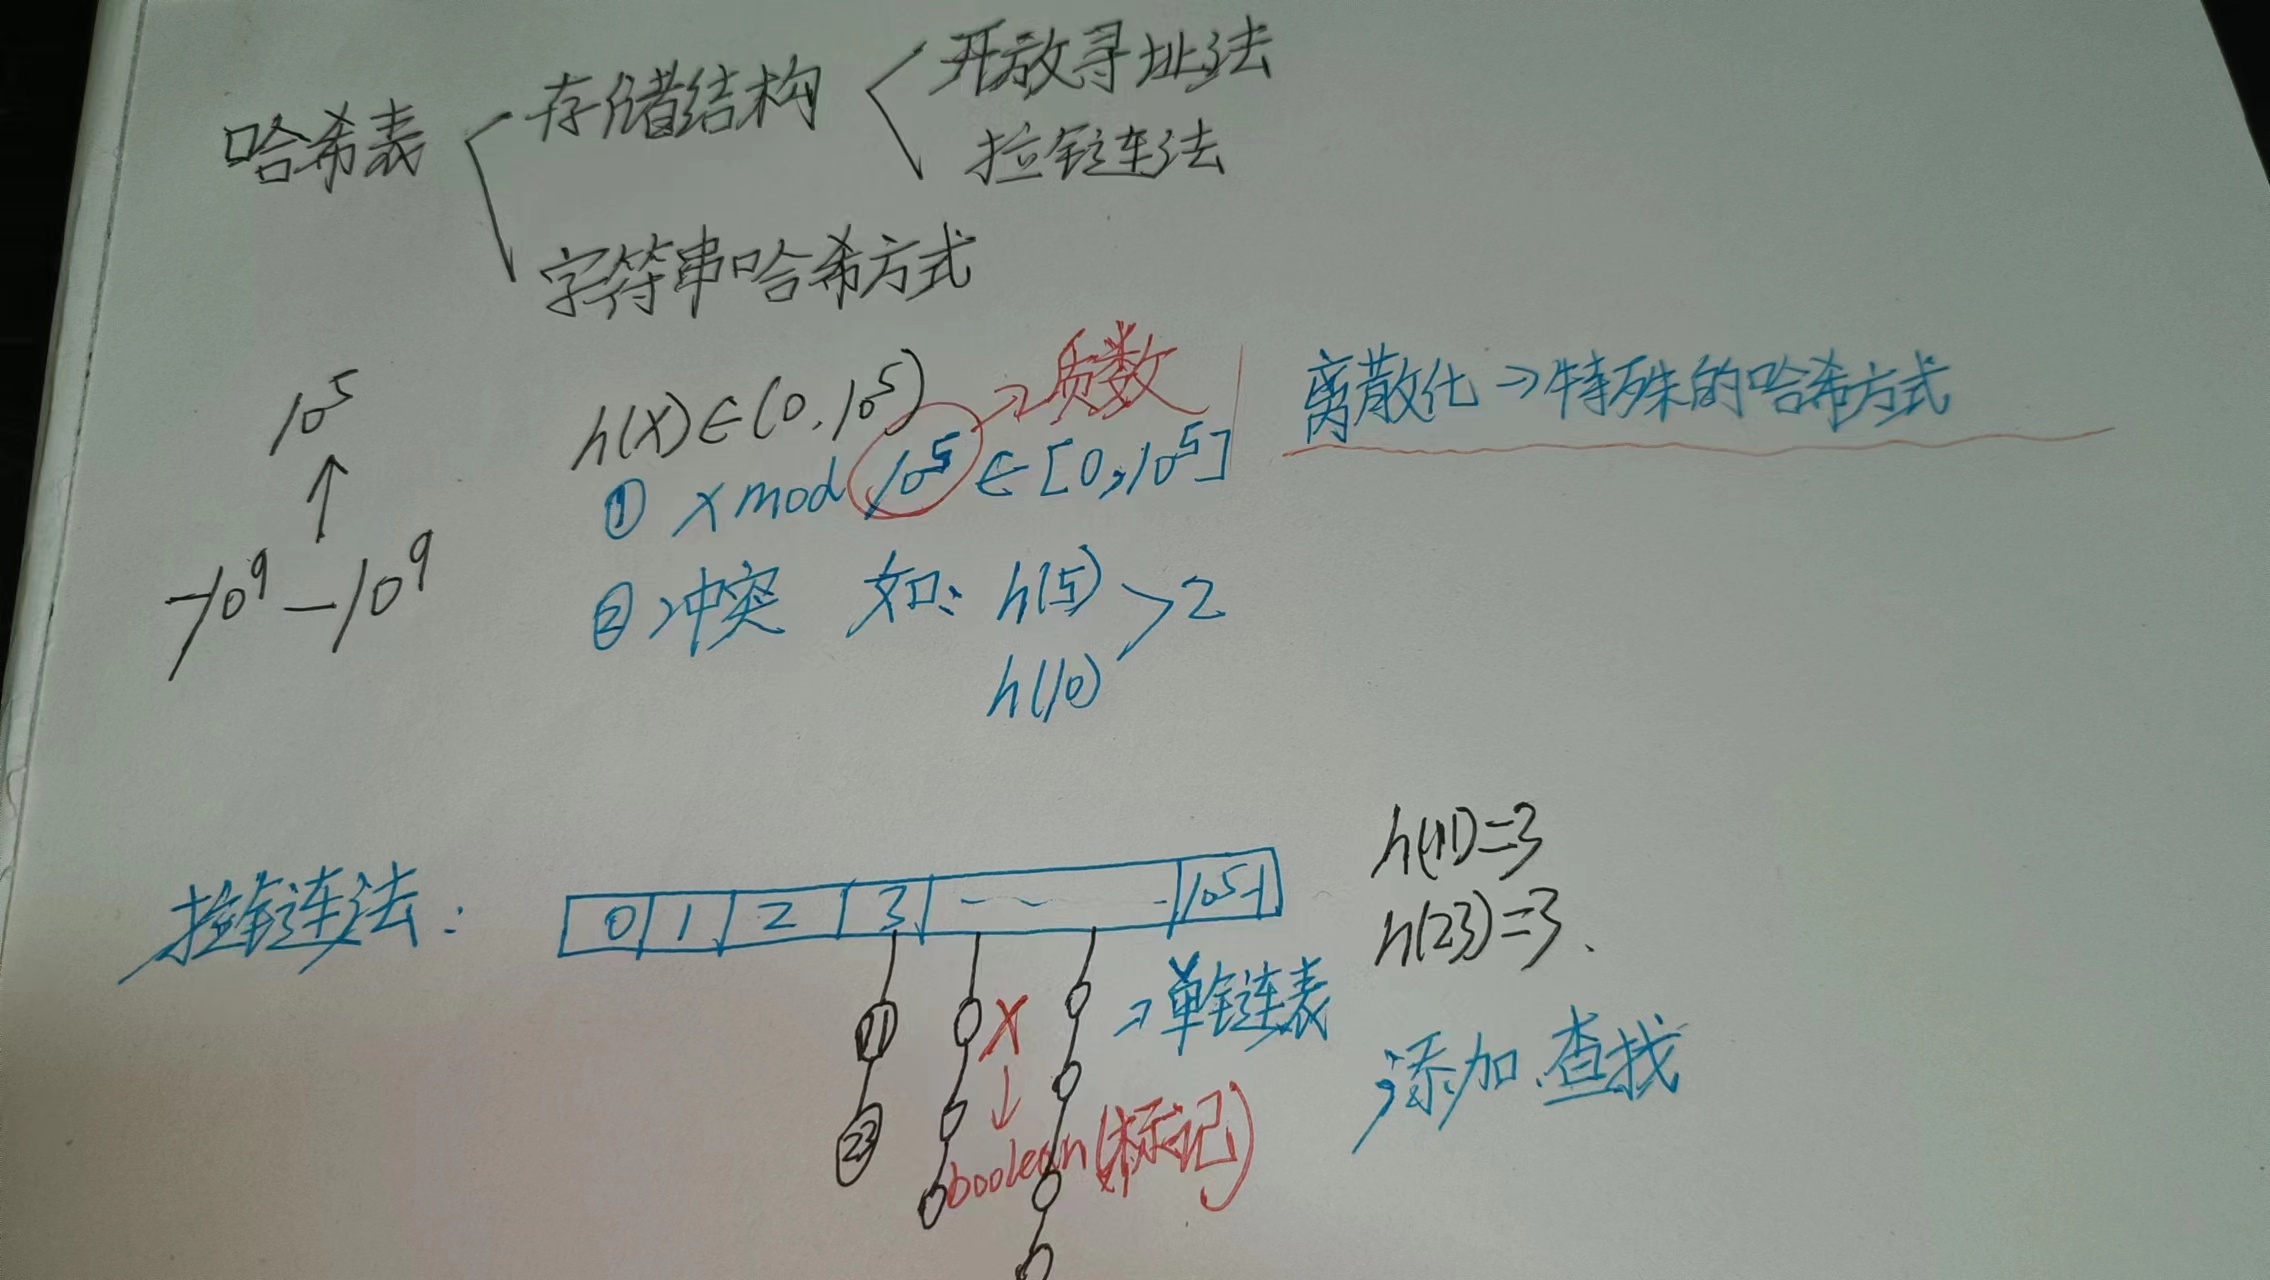 哈希表
存储结构
开放寻址法
拉链法
字符串哈希方式
10⁵
↑
-10⁹—10⁹
h(x)∈(0,10⁵)
→质数
① x mod 10⁵ ∈ [0,10⁵]
离散化→特殊的哈希方式
② 冲突 如: h(5) > 2
h(10)
h(11)=3
h(23)=3、
拉链法:
0 1 2 3 10⁵-1
11
23
X
↓
boolean(标记)
→单链表
添加、查找